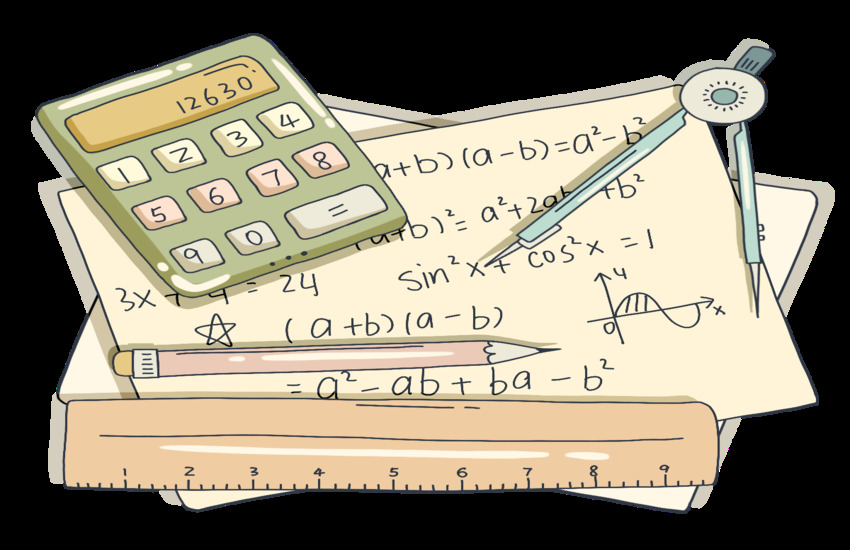 12630
1 2 3 4
5 6 7 8
9 0 =
a+b) (a-b) = a²-b²
(a+b)² = a²+2ab +b²
sin²x + cos²x = 1
3x + 4 = 24
y
x
0
(a+b)(a-b)
= a²-ab+ba-b²
1 2 3 4 5 6 7 8 9